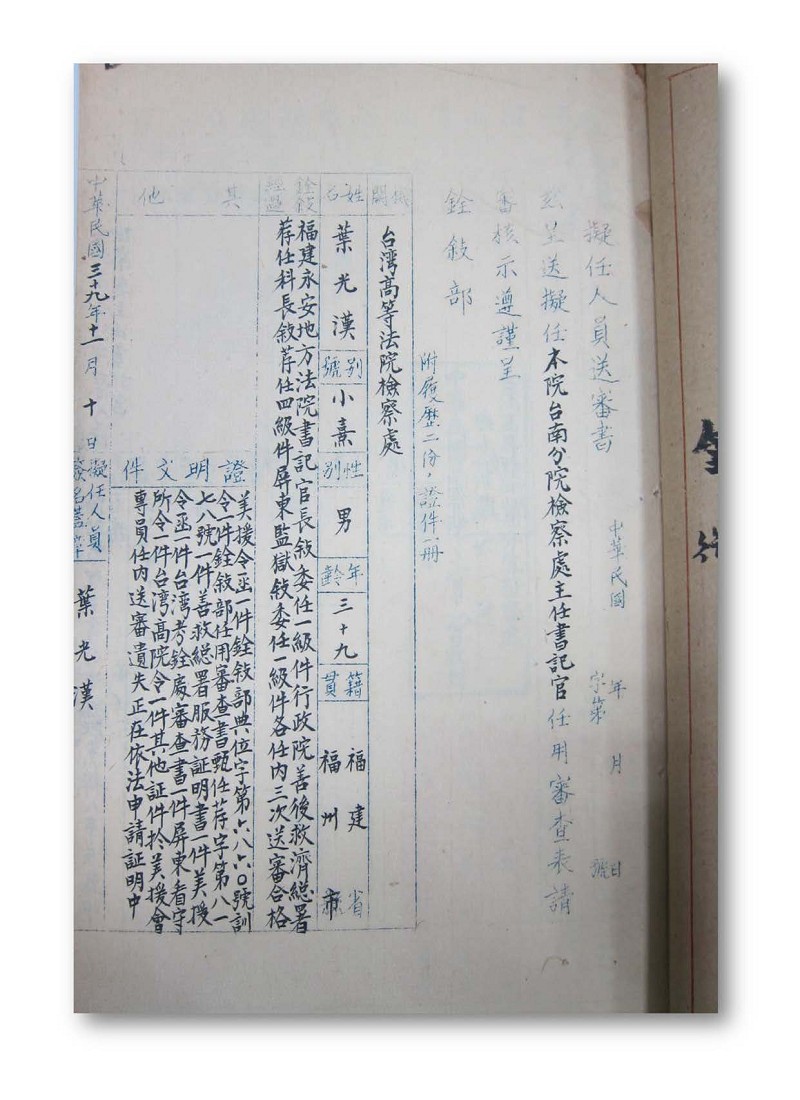 擬任人員送審書
中華民國　年　月　日
字第　號
玆呈送擬任本院台南分院檢察處主任書記官任用審查表請
審核示遵謹呈
銓敍部
附履歷二份，證件一冊
機關
台湾高等法院檢察處
姓名
葉光漢
別號
小熹
性別
男
年齡
三十九
籍貫
福建省
福州市
銓敍經過
福建永安地方法院書記官長敍委任一級件行政院善後救濟總署
荐任科長敍荐任四級件屏東監獄敍委任一級件各任內三次送審合格
其他
證明文件
美援令函一件銓敍部典位字第六八六〇號訓
令一件銓敍部任用審查書甄任荐字第八一
七八號一件善救總署服務証明書一件美援
令函一件台湾考銓處審查書一件屏東看守
所令一件台湾高院令一件其他証件於美援會
專員任內送審遺失正在依法申請証明中
中華民國三十九年十一月十日
擬任人員
簽名蓋章
葉光漢